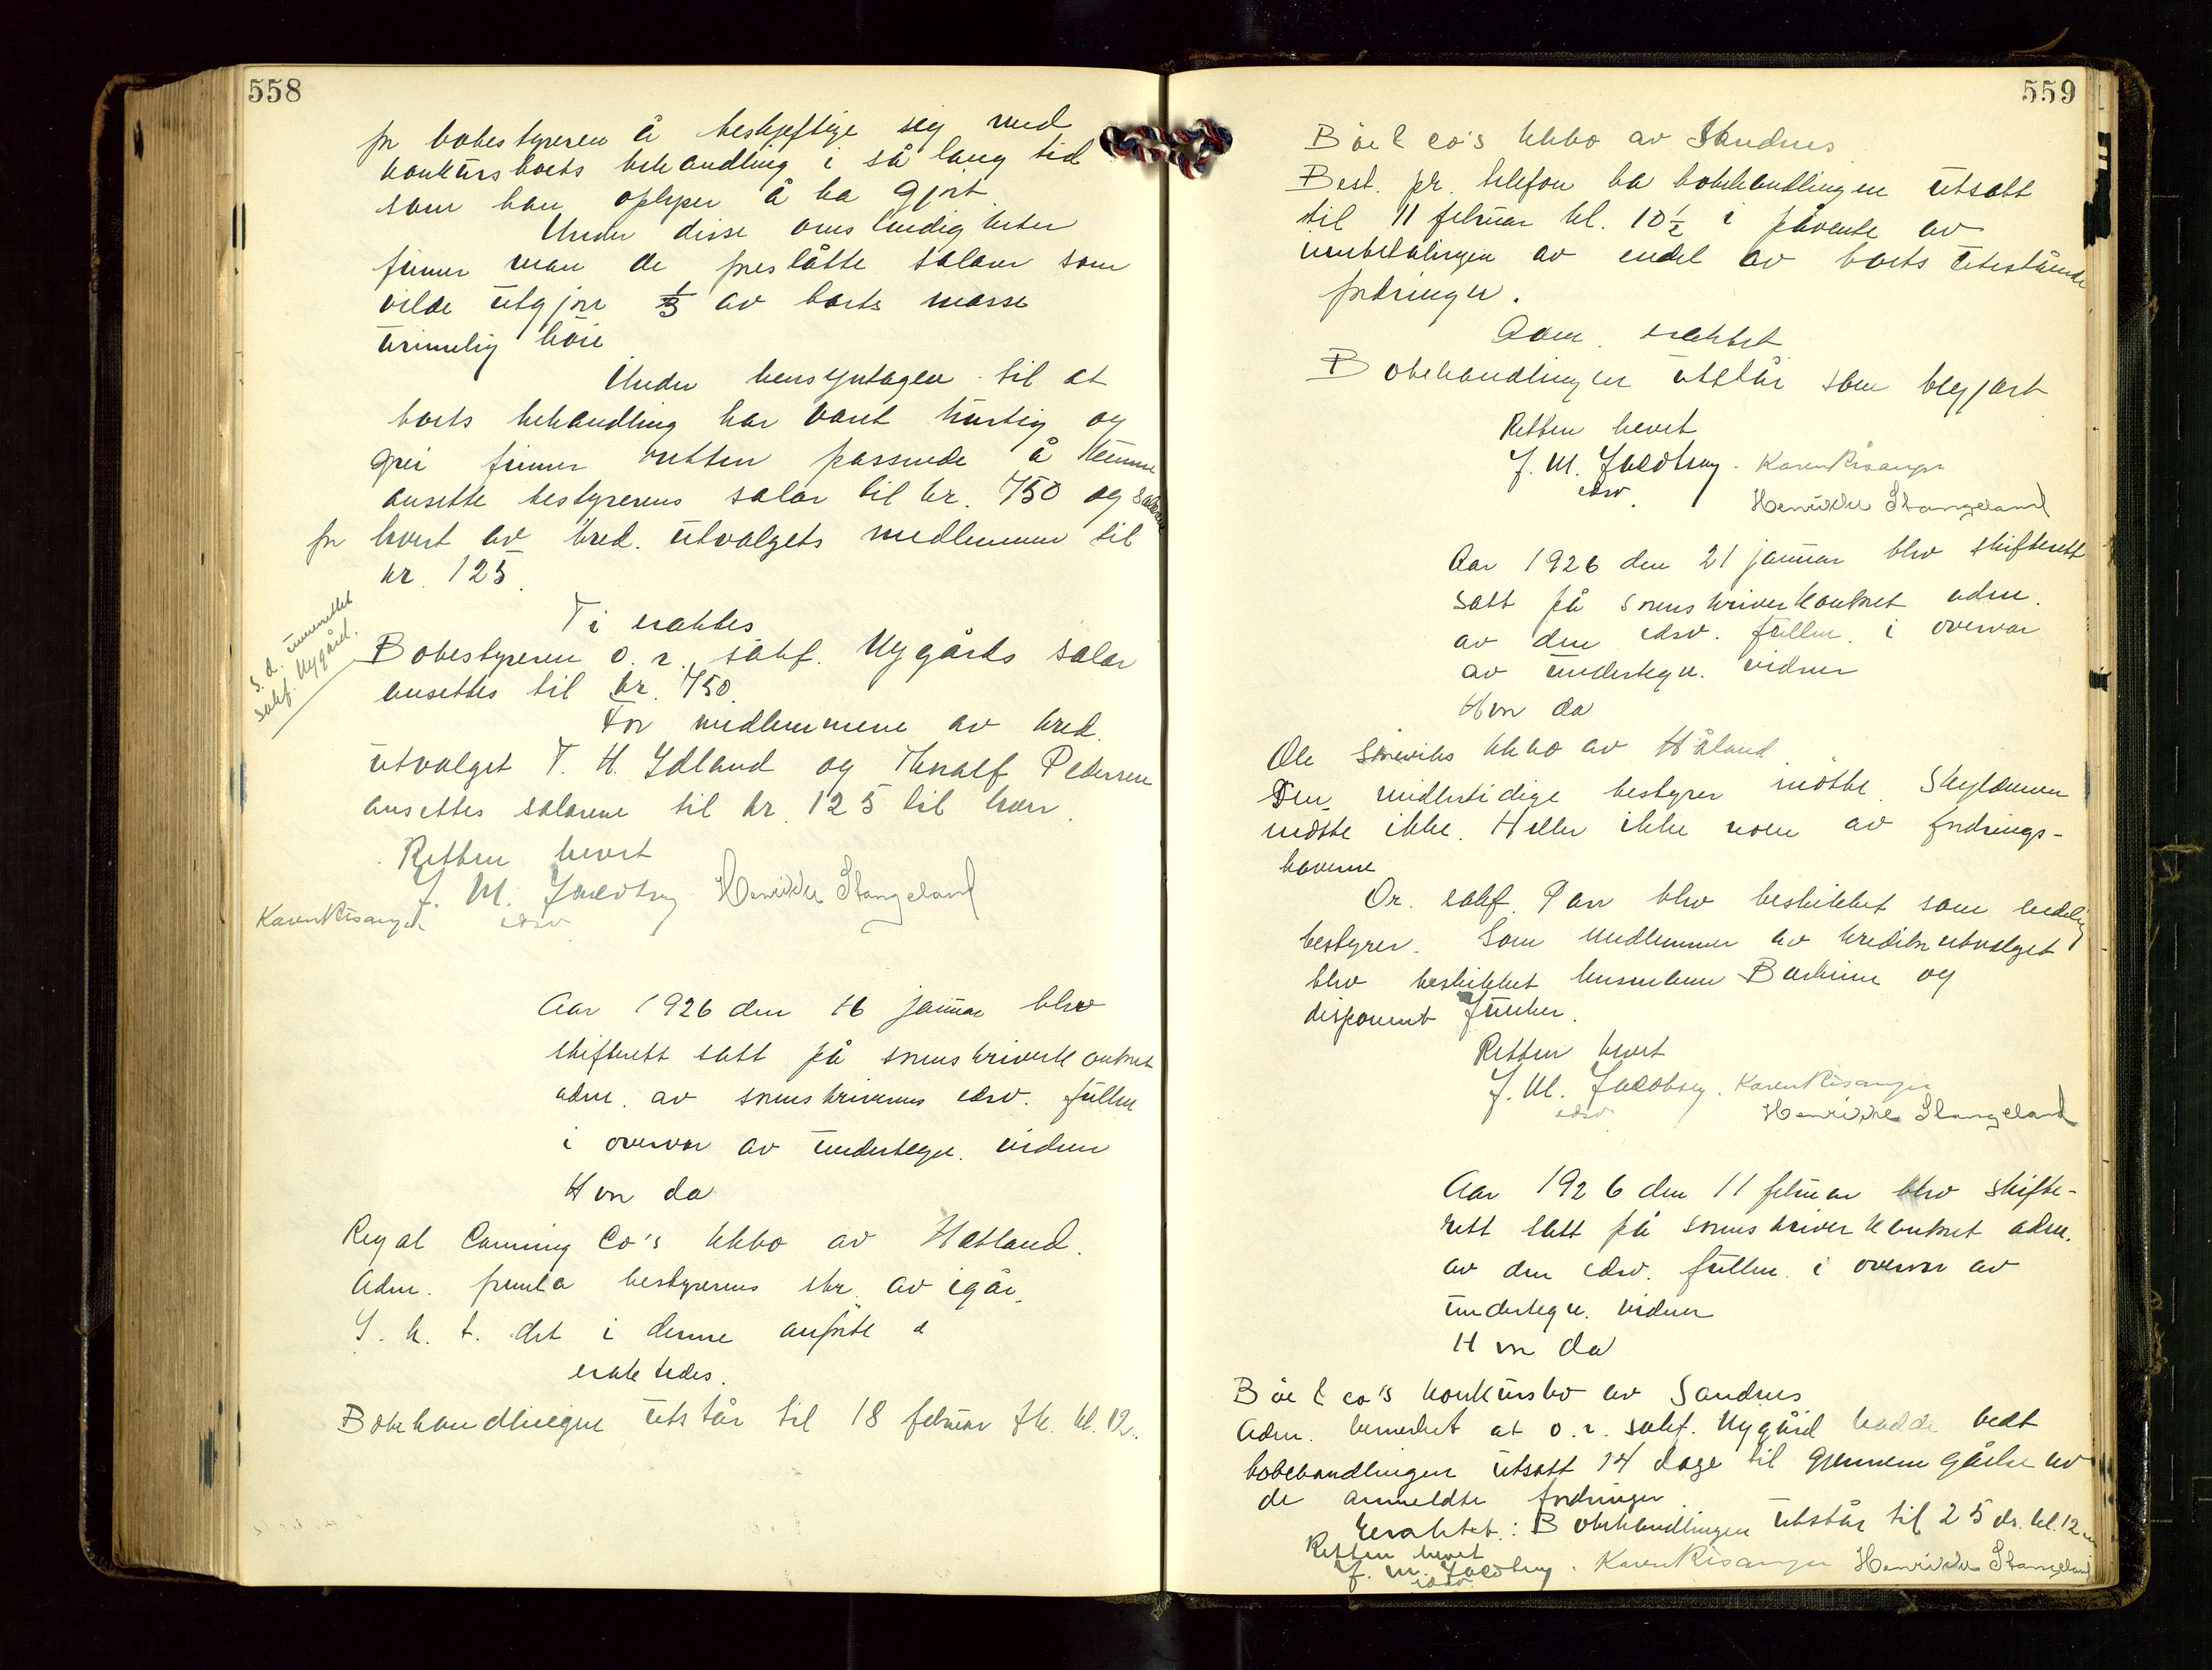 558
for bobestyreren å beskjeftige sig med
konkursboets behandling i så lang tid
som han oplyser å ha gjort.
Under disse omstendigheter
finner man de foreslåtte salarer som
vilde utgjøre 1/3 av boets masse
urimelig høie
Under hensyntagen til at
boets behandling har været hurtig og
grei finner retten passende å kunne
ansette bestyrerens salær til kr. 750 og salæret
for hvert av kred. utvalgets medlemmer til
kr. 125.
Ti eraktes
S. d. underrettet
sakf. Nygård.
Bobestyreren o. r. sakf. Nygårds salær
ansettes til kr. 750.
For medlemmene av kred.
utvalget T. H. Ydland og Thoralf Pedersen
ansettes salærene til kr. 125 til hver.
Retten hevet
J. M. Jacobsen Henrikke Stangeland
Karen Risanger edsv
Aar 1926 den 16 januar blev
skifterett satt på sorenskriverkontoret
adm. av sorenskriverens edsv. fullm
i overvær av undertegn. vidner
Hvor da
Royal Canning Co's kkbo av Hetland.
Adm. fremla bestyrerens skr. av igår.
I. h. t. det i denne anførte
eraktedes.
Bobehandlingen utstår til 18 februar fk. kl. 12.
559
Bøe & co's kkbo av Sandnes
Best. pr. telefon ba bobehandlingen utsatt
til 11 februar kl. 10 1/2 i påvente av
innbetalingen av endel av boets utestående
fordringer.
Adm. eraktet
Bobehandlingen utstår som begjært
Retten hevet
J. M. Jacobsen. Karen Risanger
edsv. Henrikke Stangeland
Aar 1926 den 21 januar blev skifterett
satt på sorenskriverkontoret adm.
av den edsv. fullm. i overvær
av undertegn. vidner
Hvor da
Ole kkbo av Håland
Den midlertidige bestyrer møtte. Skyldneren
møtte ikke. Heller ikke noen av fordrings-
haverne
Or. sakf. blev beskikket som endelig
bestyrer. Som medlemmer av kreditorutvalget
blev beskikket og
disponent Juncker.
Retten hevet
J. M. Jacobsen. Karen Risanger
edsv. Henrikke Stangeland
Aar 1926 den 11 februar blev skifte-
rett satt på sorenskriverkontoret adm.
av den edsv. fullm. i overvær av
undertegn. vidner
Hvor da
Bøe & co's konkursbo av Sandnes
Adm. bemerket at o. r. sakf. Nygård hadde bedt
bobehandlingen utsatt 14 dage til gjennemgåelse av
de anmeldte fordringer.
Eraktet: Bobehandlingen utstår til 25 ds. kl. 12
Retten hevet
J. M. Jacobsen. Karen Risanger Henrikke Stangeland
edsv.